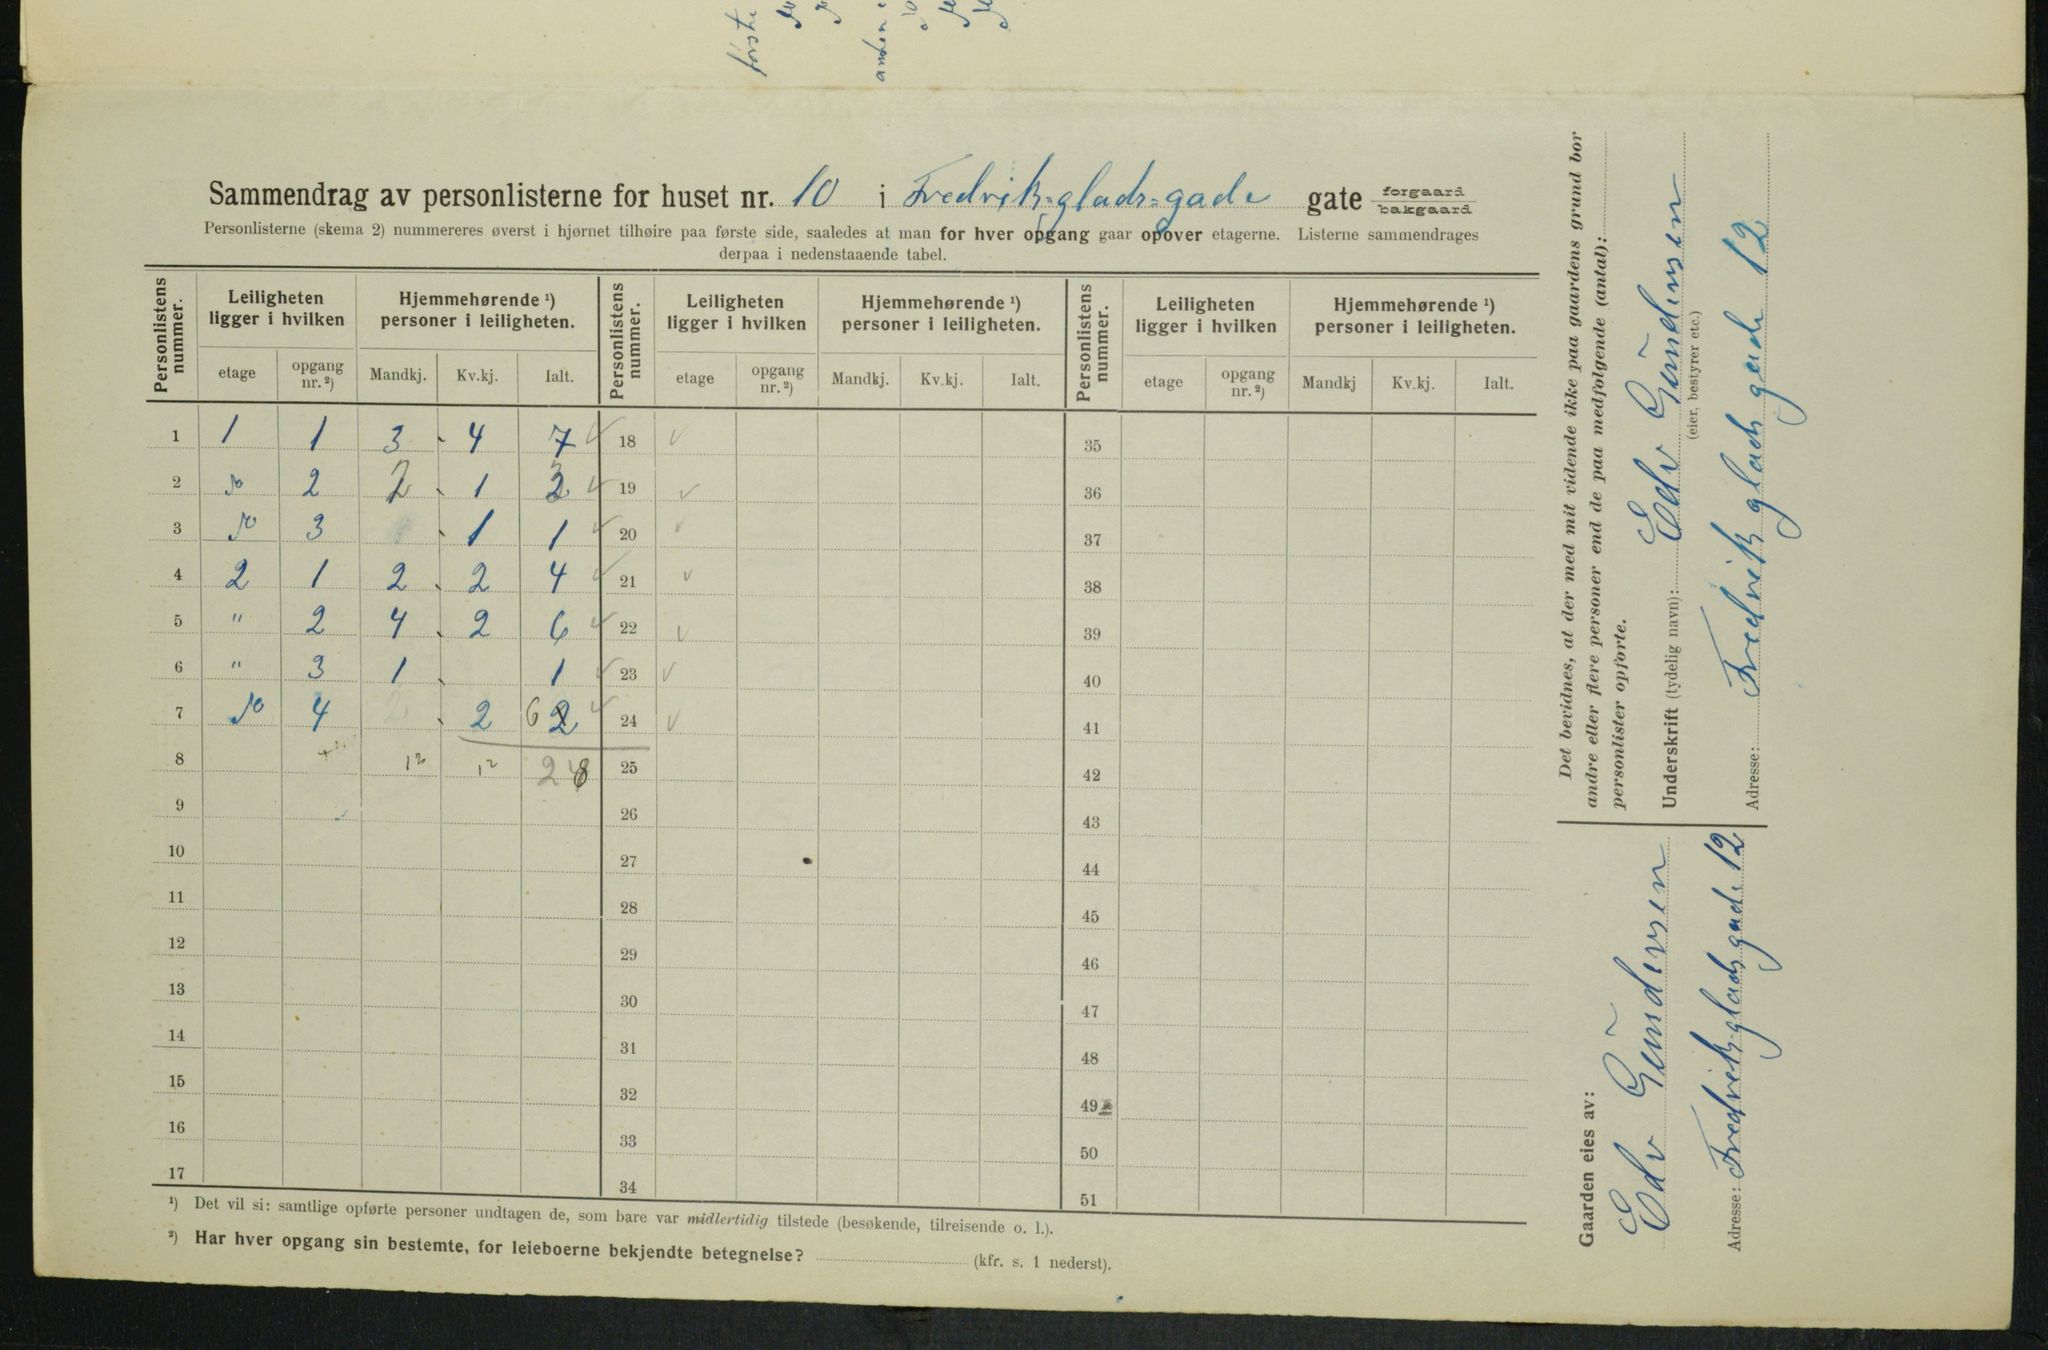 Sammendrag av personlisterne for huset nr. 10 i Fredrik=glads=gade gate forgaard bakgaard
Personlisterne (skema 2) nummereres øverst i hjørnet tilhøire paa første side, saaledes at man for hver opgang gaar opover etagerne. Listerne sammendrages
derpaa i nedenstaaende tabel.
Personlistens nummer. Leiligheten ligger i hvilken Hjemmehørende ¹) personer i leiligheten. Personlistens nummer. Leiligheten ligger i hvilken Hjemmehørende ¹) personer i leiligheten. Personlistens nummer. Leiligheten ligger i hvilken Hjemmehørende ¹) personer i leiligheten.
etage opgang nr. ²) Mandkj. Kv.kj. Ialt. etage opgang nr. ²) Mandkj. Kv.kj. Ialt. etage opgang nr. ²) Mandkj Kv.kj. Ialt.
1 1 1 3 4 7 18 35
2 do 2 2 1 3 19 36
3 do 3 1 1 20 37
4 2 1 2 2 4 21 38
5 " 2 4 2 6 22 39
6 " 3 1 1 23 40
7 do 4 2 2 24 41
8 12 12 25 42
9 26 43
10 27 44
11 28 45
12 29 46
13 30 47
14 31 48
15 32 49
16 33 50
17 34 51
¹) Det vil si: samtlige opførte personer undtagen de, som bare var midlertidig tilstede (besøkende, tilreisende o. l.).
²) Har hver opgang sin bestemte, for leieboerne bekjendte betegnelse? (kfr. s. 1 nederst).
Det bevidnes, at der med mit vidende ikke paa gaardens grund bor
andre eller flere personer end de paa medfølgende (antal):
personlister opførte.
Underskrift (tydelig navn): Edv Gündersen
(eier, bestyrer etc.)
Adresse: Fredrik glads gade 12
Gaarden eies av:
Edv Gündersen
Adresse: Fredrik glads gade 12
første
anden